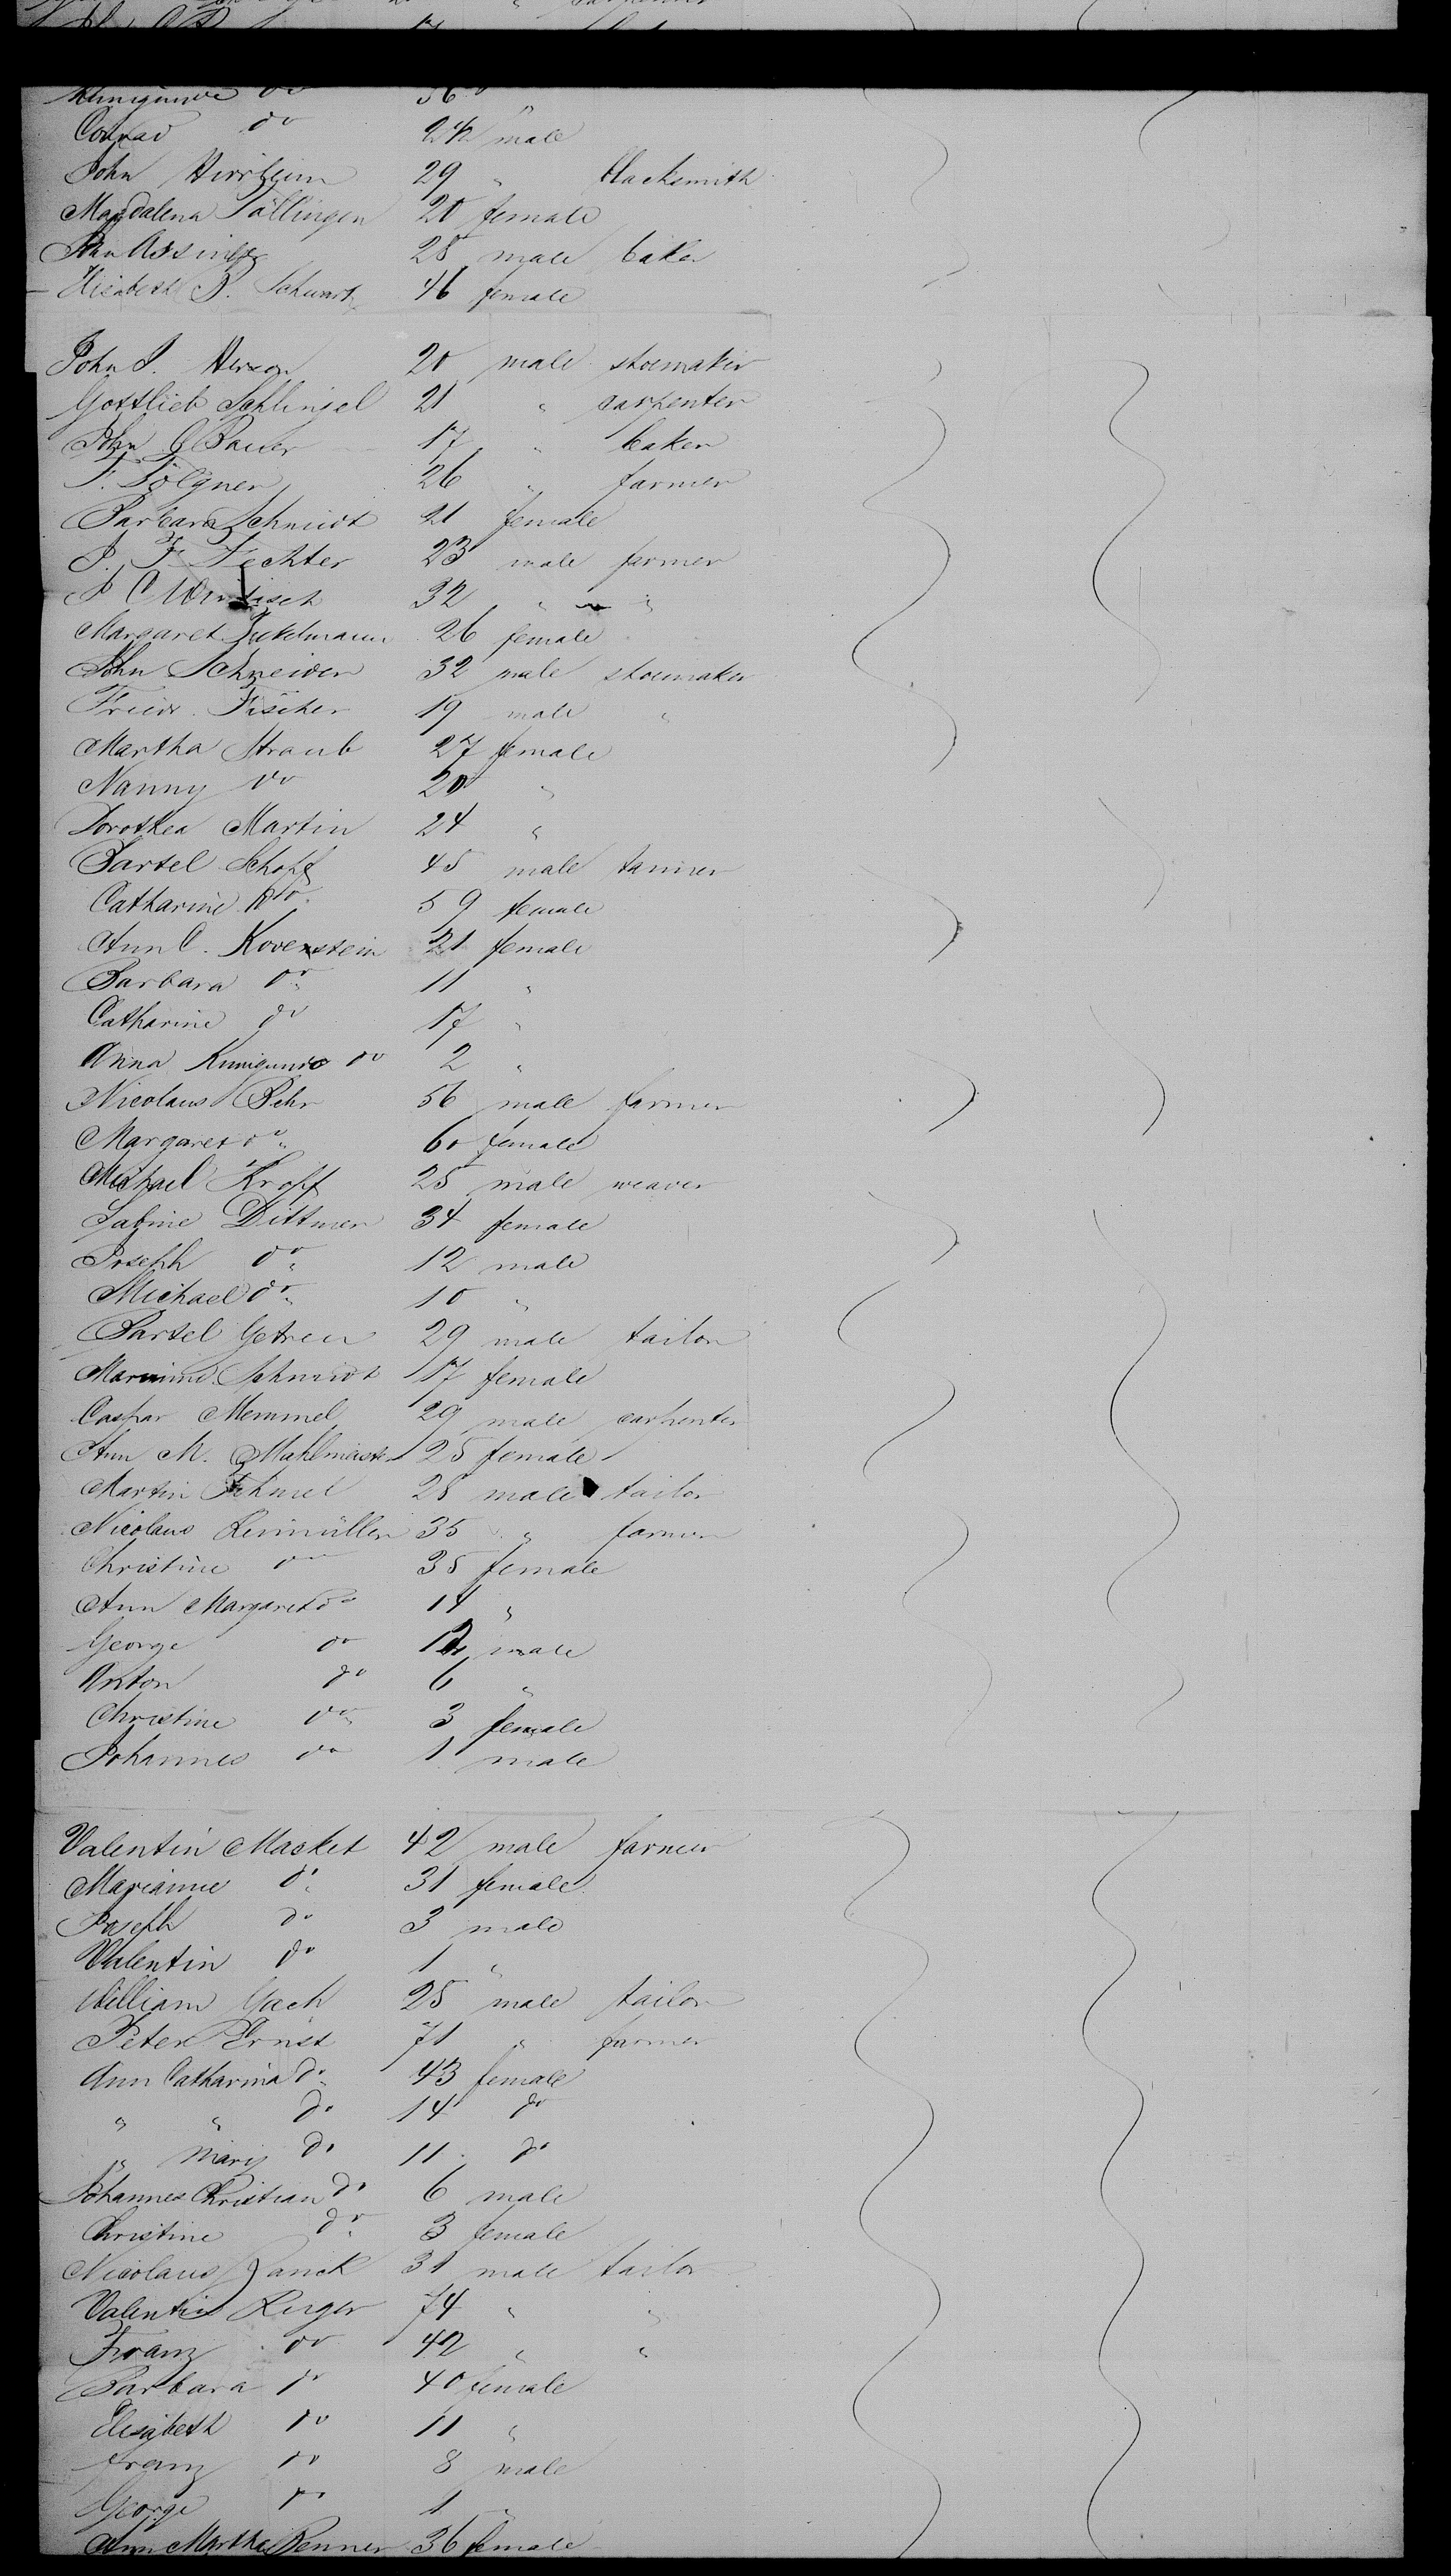 Kunigunde do 56 "
Conrad do 24 male
John 29 " blacksmith
Magdalena Föllingen 20 female
John 28 male baker
Elisabeth B. Schwartz 46 female
John J. 20 male shoemaker
Gottlieb Schlingel 21 " carpenter
John G Bauer 17 " baker
F. Folgner 26 " farmer
Barbara Schmidt 21 female
J. F. Fechter 23 male farmer
J C 32 " "
Margaret 26 female
John Schneider 32 male shoemaker
Friedr. Fischer 19 male "
Martha Straub 27 female
Nanny do 20 "
Dorothea Martin 24 "
Bartel Schopf 45 male tanner
Catharine do 59 female
Ann C. Kovenstein 21 female
Barbara do 11 "
Catharine do 17 "
Anna Kunigunde do 2 "
Nicolaus Behr 56 male farmer
Margaret do 60 female
Michael Kropf 25 male weaver
Sabine Dittmer 34 female
Joseph do 12 male
Michael do 10 "
Bartel Getreu 29 male tailor
Schmidt 17 female
Caspar Memmel 29 male carpenter
Ann M. Mahlmeister 25 female
Martin 28 male tailor
Nicolaus Leimüller 35 " farmer
Christine do 35 female
Ann Margaret do 14 "
George do 12 male
Anton do 6 "
Christine do 3 female
Johannes do 1 male
Valentin Macket 42 male farmer
Marianne do 31 female
Joseph do 3 male
Valentin do 1 "
William Gach 25 male tailor
Peter Ernst 71 " farmer
Ann Catharina do 43 female
" " do 14 do
" Mary do 11 do
Johannes Christian do 6 male
Christine do 3 female
Nicolaus Janck 31 male tailor
Valentin Luger 74 " "
Franz do 42 " "
Barbara do 40 female
Elisabeth do 11 "
Franz do 8 male
George do 1 "
Ann Martha Renner 36 female